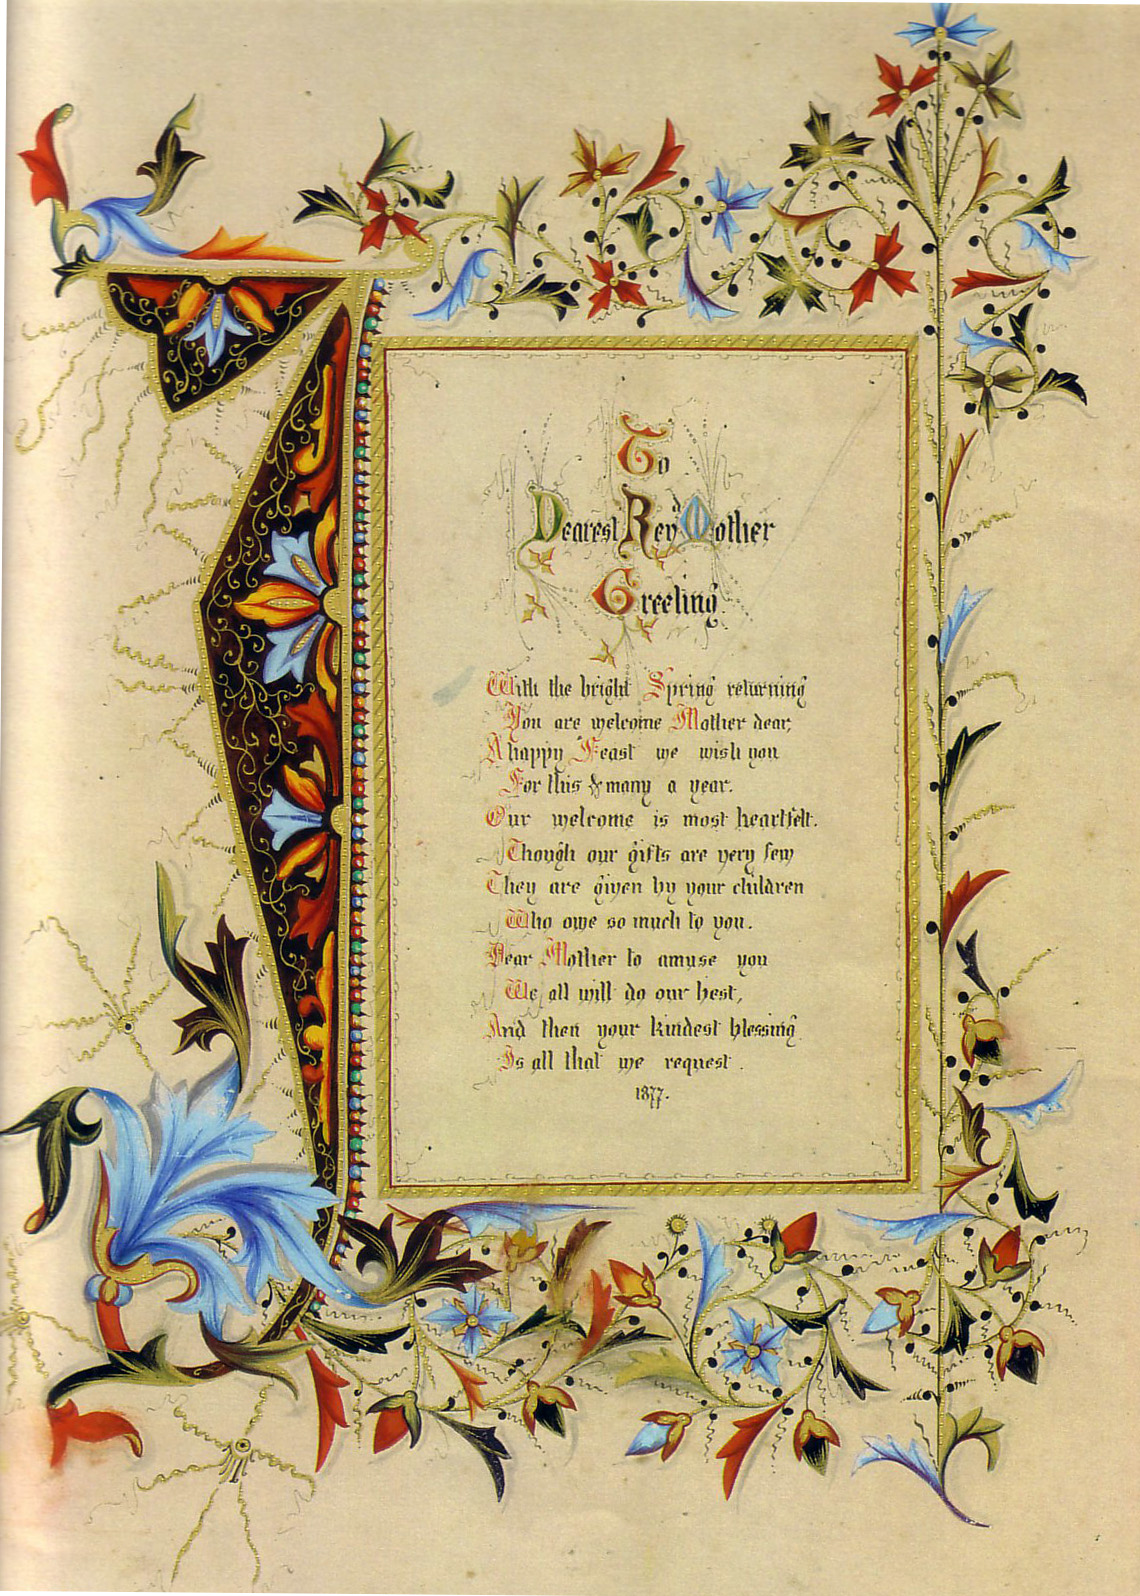 To
Dearest Revd Mother
Greeting
With the bright Spring returning
You are welcome Mother dear,
A happy Feast we wish you
For this & many a year.
Our welcome is most heartfelt.
Though our gifts are very few
They are given by your children
Who owe so much to you.
Dear Mother to amuse you
We all will do our best,
And then your kindest blessing
Is all that we request.
1877.